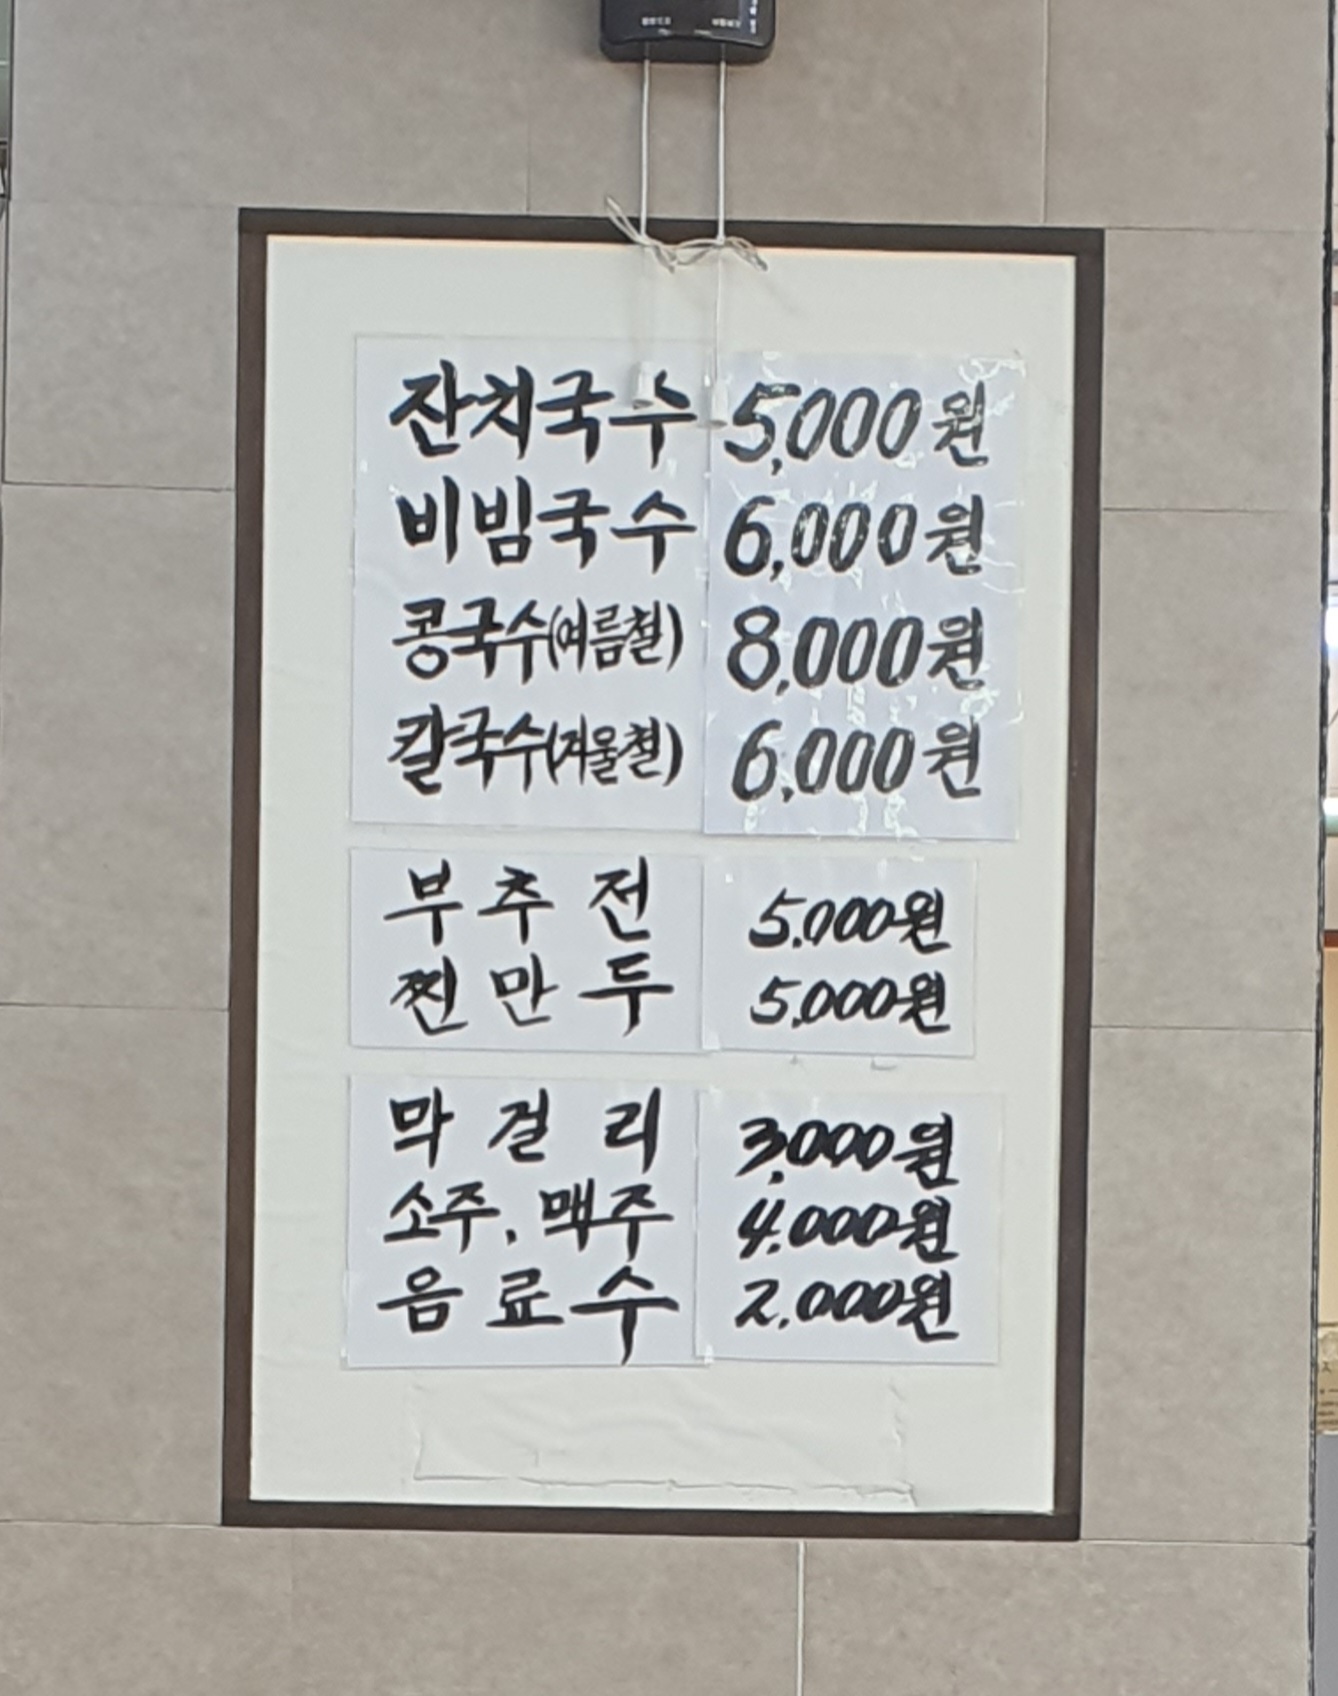 잔치국수 5,000원
비빔국수 6,000원
콩국수(여름철) 8,000원
칼국수(겨울철) 6,000원
부추전 5,000원
찐만두 5,000원
막걸리 3,000원
소주, 맥주 4,000원
음료수 2,000원